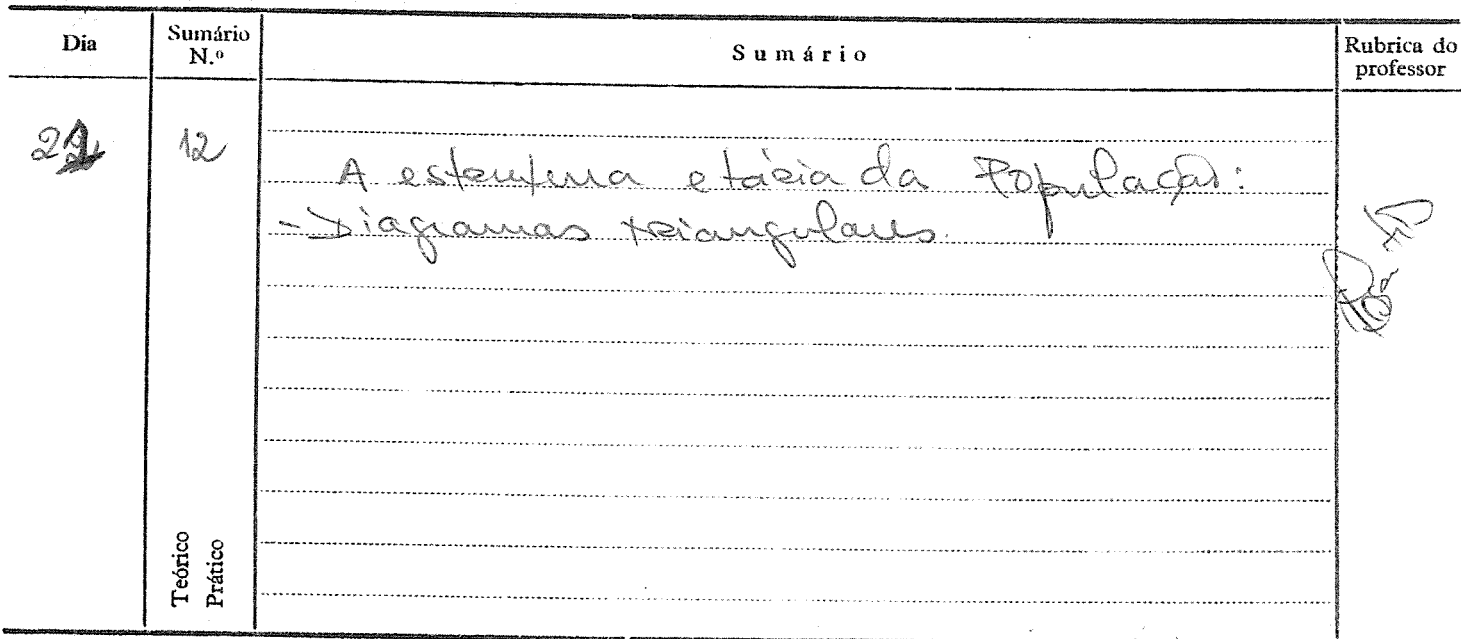 Dia Sumário N.º Sumário Rubrica do professor
12
A estrutura etária da População:
- Diagramas triangulares.
Teórico
Prático